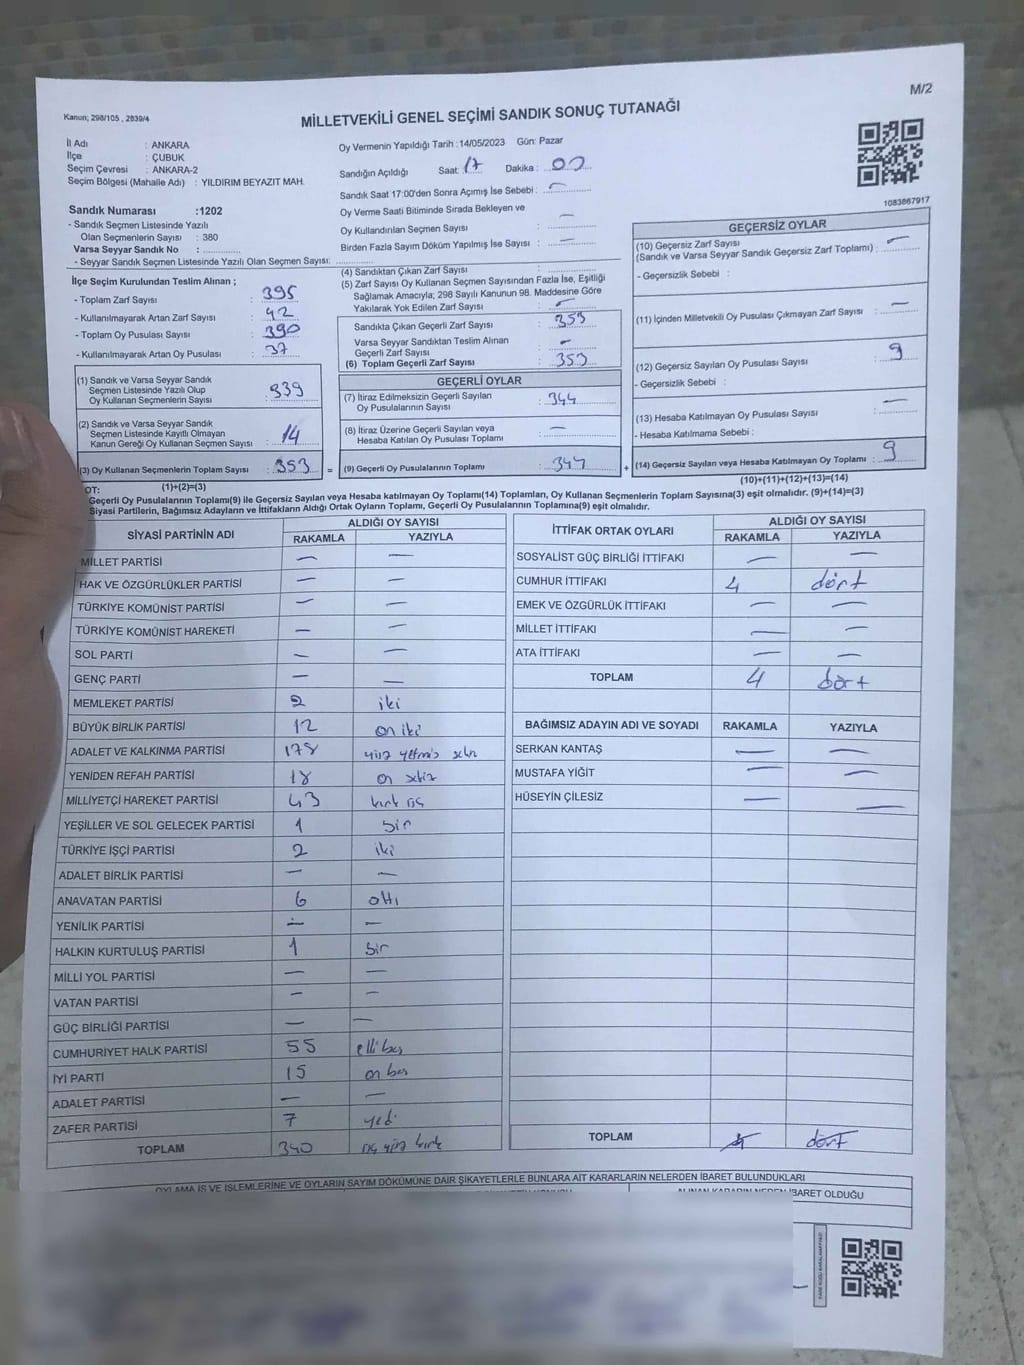 M/2
Kanun; 298/105 , 2839/4
MİLLETVEKİLİ GENEL SEÇİMİ SANDIK SONUÇ TUTANAĞI
İl Adı : ANKARA
İlçe : ÇUBUK
Seçim Çevresi : ANKARA-2
Seçim Bölgesi (Mahalle Adı) : YILDIRIM BEYAZIT MAH.
Oy Vermenin Yapıldığı Tarih :14/05/2023 Gün: Pazar
Sandığın Açıldığı Saat: 17 Dakika : 00
Sandık Saat 17:00'den Sonra Açımış İse Sebebi : —
Oy Verme Saati Bitiminde Sırada Bekleyen ve
Oy Kullandırılan Seçmen Sayısı : —
Birden Fazla Sayım Döküm Yapılmış İse Sayısı : —
1083867917
Sandık Numarası :1202
- Sandık Seçmen Listesinde Yazılı
Olan Seçmenlerin Sayısı : 380
Varsa Seyyar Sandık No :
- Seyyar Sandık Seçmen Listesinde Yazılı Olan Seçmen Sayısı:
İlçe Seçim Kurulundan Teslim Alınan ;
- Toplam Zarf Sayısı : 395
- Kullanılmayarak Artan Zarf Sayısı : 42
- Toplam Oy Pusulası Sayısı : 390
- Kullanılmayarak Artan Oy Pusulası : 37
(1) Sandık ve Varsa Seyyar Sandık
Seçmen Listesinde Yazılı Olup
Oy Kullanan Seçmenlerin Sayısı : 339
(2) Sandık ve Varsa Seyyar Sandık
Seçmen Listesinde Kayıtlı Olmayan
Kanun Gereği Oy Kullanan Seçmen Sayısı : 14
(3) Oy Kullanan Seçmenlerin Toplam Sayısı : 353 =
(1)+(2)=(3)
(4) Sandıktan Çıkan Zarf Sayısı :
(5) Zarf Sayısı Oy Kullanan Seçmen Sayısından Fazla İse, Eşitliği
Sağlamak Amacıyla; 298 Sayılı Kanunun 98. Maddesine Göre
Yakılarak Yok Edilen Zarf Sayısı : —
Sandıkta Çıkan Geçerli Zarf Sayısı : 353
Varsa Seyyar Sandıktan Teslim Alınan
Geçerli Zarf Sayısı : —
(6) Toplam Geçerli Zarf Sayısı : 353
GEÇERLİ OYLAR
(7) İtiraz Edilmeksizin Geçerli Sayılan
Oy Pusulalarının Sayısı : 344
(8) İtiraz Üzerine Geçerli Sayılan veya
Hesaba Katılan Oy Pusulası Toplamı : —
(9) Geçerli Oy Pusulalarının Toplamı : 344 +
GEÇERSİZ OYLAR
(10) Geçersiz Zarf Sayısı
(Sandık ve Varsa Seyyar Sandık Geçersiz Zarf Toplamı) : —
- Geçersizlik Sebebi :
(11) İçinden Milletvekili Oy Pusulası Çıkmayan Zarf Sayısı : —
(12) Geçersiz Sayılan Oy Pusulası Sayısı : 9
- Geçersizlik Sebebi :
(13) Hesaba Katılmayan Oy Pusulası Sayısı : —
- Hesaba Katılmama Sebebi :
(14) Geçersiz Sayılan veya Hesaba Katılmayan Oy Toplamı : 9
(10)+(11)+(12)+(13)=(14)
OT:
Geçerli Oy Pusulalarının Toplamı(9) ile Geçersiz Sayılan veya Hesaba katılmayan Oy Toplamı(14) Toplamları, Oy Kullanan Seçmenlerin Toplam Sayısına(3) eşit olmalıdır. (9)+(14)=(3)
Siyasi Partilerin, Bağımsız Adayların ve İttifakların Aldığı Ortak Oyların Toplamı, Geçerli Oy Pusulalarının Toplamına(9) eşit olmalıdır.
SİYASİ PARTİNİN ADI ALDIĞI OY SAYISI
RAKAMLA YAZIYLA
MİLLET PARTİSİ — —
HAK VE ÖZGÜRLÜKLER PARTİSİ — —
TÜRKİYE KOMÜNİST PARTİSİ — —
TÜRKİYE KOMÜNİST HAREKETİ — —
SOL PARTİ — —
GENÇ PARTİ — —
MEMLEKET PARTİSİ 2 iki
BÜYÜK BİRLİK PARTİSİ 12 on iki
ADALET VE KALKINMA PARTİSİ 178 yüz yetmiş sekiz
YENİDEN REFAH PARTİSİ 18 on sekiz
MİLLİYETÇİ HAREKET PARTİSİ 43 kırk üç
YEŞİLLER VE SOL GELECEK PARTİSİ 1 bir
TÜRKİYE İŞÇİ PARTİSİ 2 iki
ADALET BİRLİK PARTİSİ — —
ANAVATAN PARTİSİ 6 altı
YENİLİK PARTİSİ — —
HALKIN KURTULUŞ PARTİSİ 1 bir
MİLLİ YOL PARTİSİ — —
VATAN PARTİSİ — —
GÜÇ BİRLİĞİ PARTİSİ — —
CUMHURİYET HALK PARTİSİ 55 elli beş
İYİ PARTİ 15 on beş
ADALET PARTİSİ — —
ZAFER PARTİSİ 7 yedi
TOPLAM 340 üç yüz kırk
İTTİFAK ORTAK OYLARI ALDIĞI OY SAYISI
RAKAMLA YAZIYLA
SOSYALİST GÜÇ BİRLİĞİ İTTİFAKI — —
CUMHUR İTTİFAKI 4 dört
EMEK VE ÖZGÜRLÜK İTTİFAKI — —
MİLLET İTTİFAKI — —
ATA İTTİFAKI — —
TOPLAM 4 dört
BAĞIMSIZ ADAYIN ADI VE SOYADI RAKAMLA YAZIYLA
SERKAN KANTAŞ — —
MUSTAFA YİĞİT — —
HÜSEYİN ÇİLESİZ — —
TOPLAM 4 dört
OYLAMA İŞ VE İŞLEMLERİNE VE OYLARIN SAYIM DÖKÜMÜNE DAİR ŞİKAYETLERLE BUNLARA AİT KARARLARIN NELERDEN İBARET BULUNDUKLARI
ALINAN KARARIN NEDEN İBARET OLDUĞU